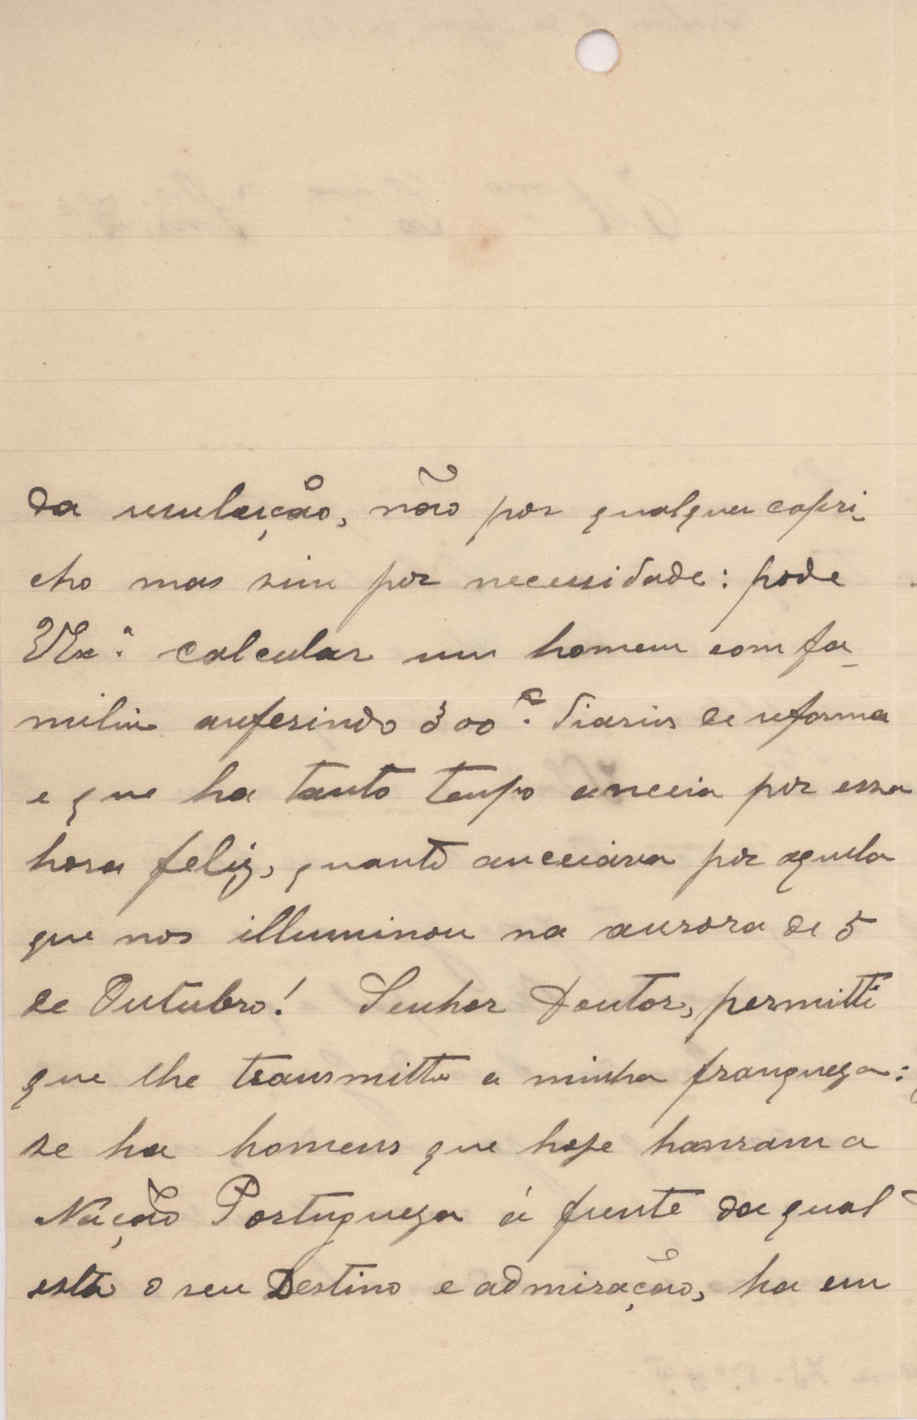 da resulução, não por qualquer capri-
cho mas sim por necessidade: pode
VExª. calcular um homem com fa-
milia auferindo 300 rs. diarios de reforma
e que ha tanto tempo anceia por essa
hora feliz, quanto anceiava por aquela
que nos illuminou na aurora de 5
de Outubro! Senhor Doutor, permitti
que lhe transmitta a minha franqueza:
se ha homens que hoje honram a
Nação Portugueza á frente da qual
está o seu Destino e admiração, ha um